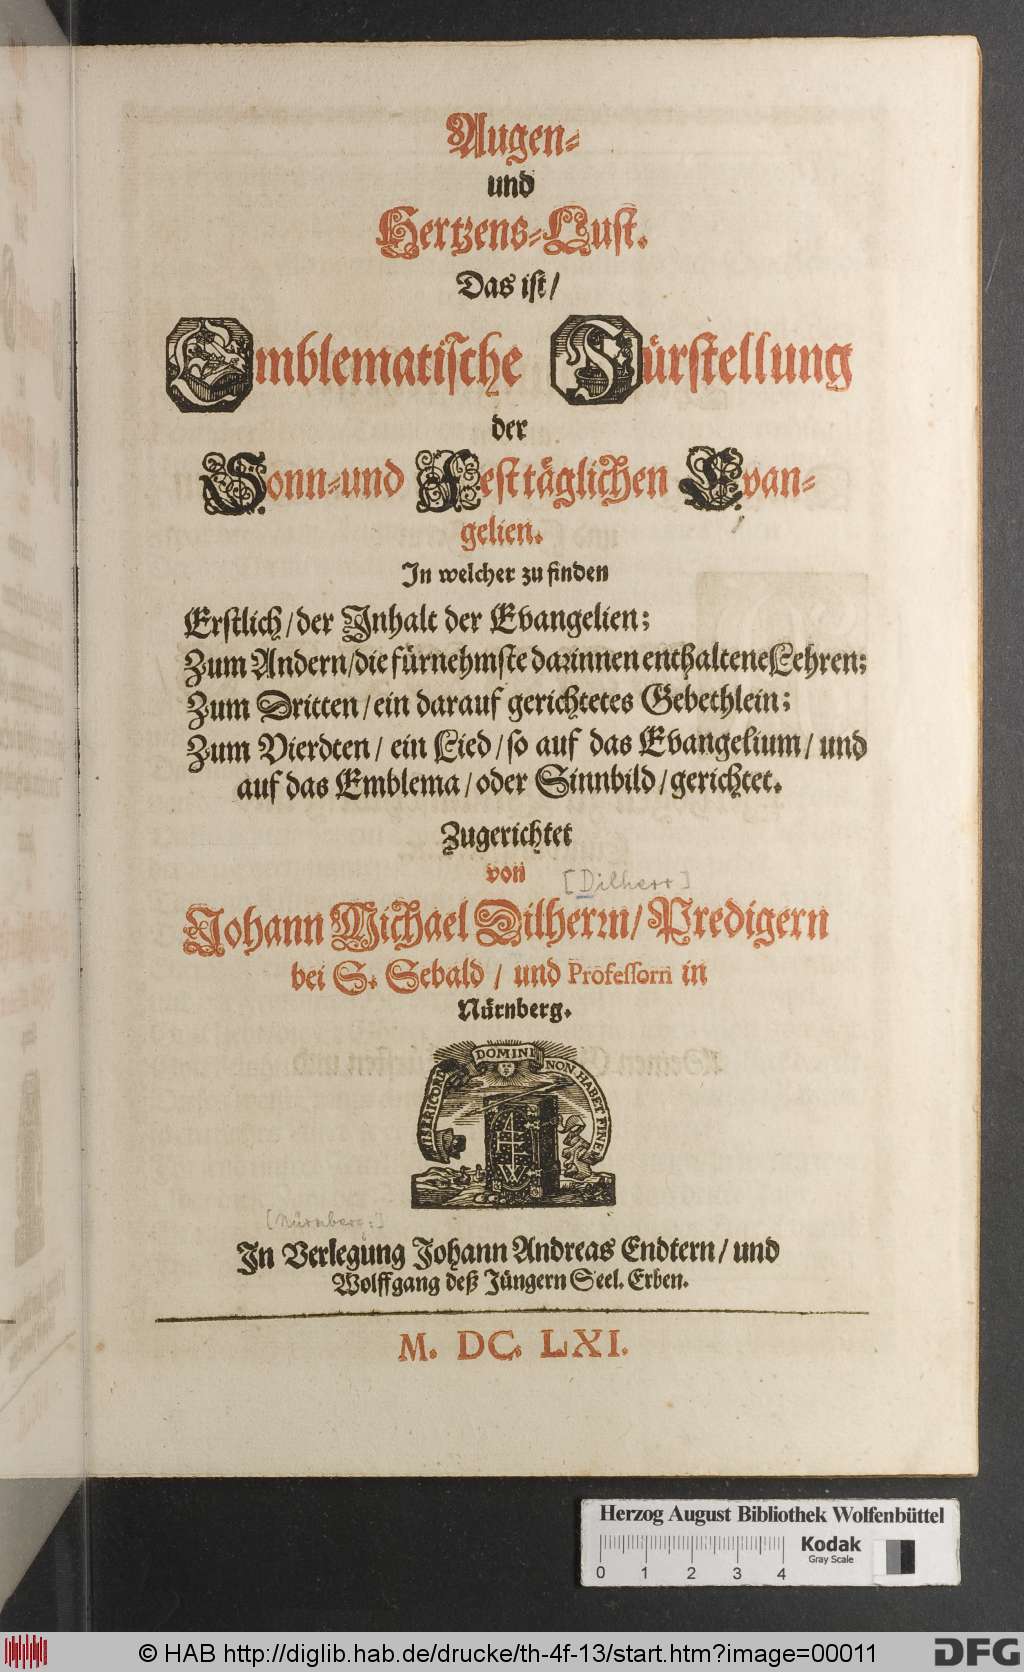 Augen-
und
Hertzens-Lust.
Das ist/
Emblematische Fürstellung
der
Sonn-und Festtäglichen Evan-
gelien.
In welcher zu finden
Erstlich/der Inhalt der Evangelien;
Zum Andern/die fürnehmste darinnen enthaltene Lehren;
Zum Dritten/ein darauf gerichtetes Gebethlein;
Zum Vierdten/ein Lied/so auf das Evangelium/und
auf das Emblema/oder Sinnbild/gerichtet.
Zugerichtet
von
[Dilherr]
Johann Michael Dilherrn/Predigern
bei S. Sebald/und Professorn in
Nürnberg.
MISERICORD DOMINI NON HABET FINEM
W
[Nürnberg:]
In Verlegung Johann Andreas Endtern/und
Wolffgang deß Jüngern Seel. Erben.
M. DC. LXI.
Herzog August Bibliothek Wolfenbüttel
Kodak
Gray Scale
0 1 2 3 4
© HAB http://diglib.hab.de/drucke/th-4f-13/start.htm?image=00011
DFG